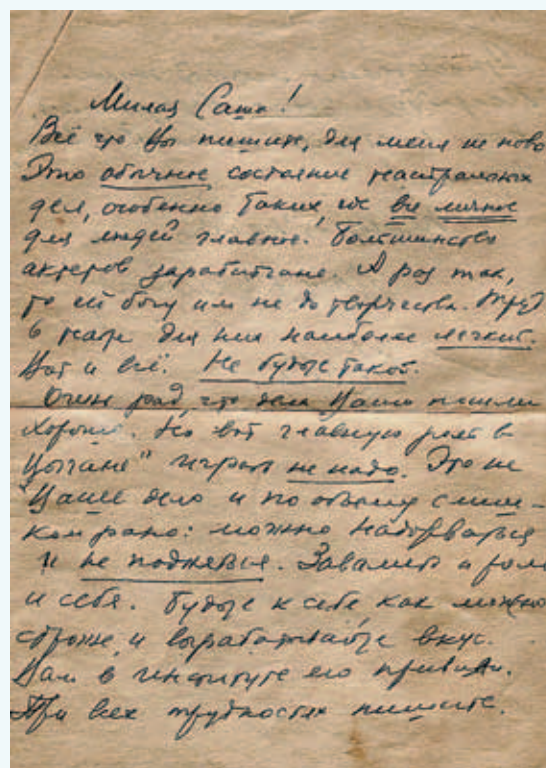 Милая Саша!
Всё что Вы пишите, для меня не ново
Это обычное состояние театральных
дел, особенно таких, где все личное
для людей главное. Большинство
актеров зарабитчане. А раз так,
то ей богу им не до творчества. Труд
в театре для них наиболее легкий.
Вот и всё. Не будьте такой.
Очень рад, что дела Ваши пошли
хорошо. Но вот главную роль в
Цыгане" играть не надо. Это не
Ваше дело и по объему слиш-
ком рано: можно надорваться
и не подняться. Завалить и роль
и себя. Будьте к себе как можно
строже и вырабатывайте вкус.
Вам в институте его привили.
При всех трудностях пишите.